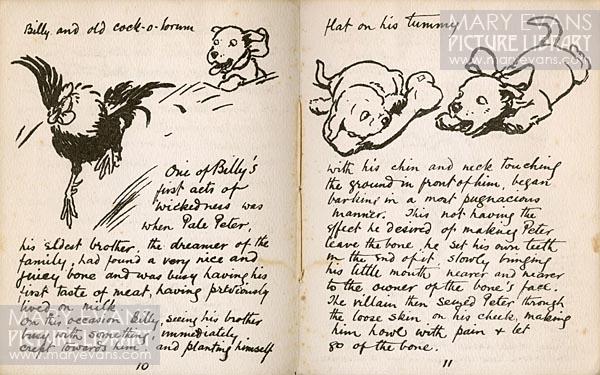 Billy and old cock-o-lorum
One of Billy's
first acts of
wickedness was
when Pale Peter,
his eldest brother, the dreamer of the
family, had found a very nice and
juicy bone and was busy having his
first taste of meat, having previously
lived on milk
On this occasion Billy, seeing his brother
busy with something, immediately
crept towards him, and planting himself
10
flat on his tummy
with his chin and neck touching
the ground in front of him, began
barking in a most pugnacious
manner. This not having the
effect he desired of making Peter
leave the bone, he set his own teeth
in the end of it, slowly bringing
his little mouth nearer and nearer
to the owner of the bone's face.
The villain then seized Peter through
the loose skin on his cheek, making
him howl with pain & let
go of the bone.
11
MARY EVANS
PICTURE LIBRARY
www.maryevans.com
MARY EVANS
PICTURE LIBRARY
www.maryevans.com
MARY EVANS
PICTURE LIBRARY
www.maryevans.com
MARY EVANS
PICTURE LIBRARY
www.maryevans.com